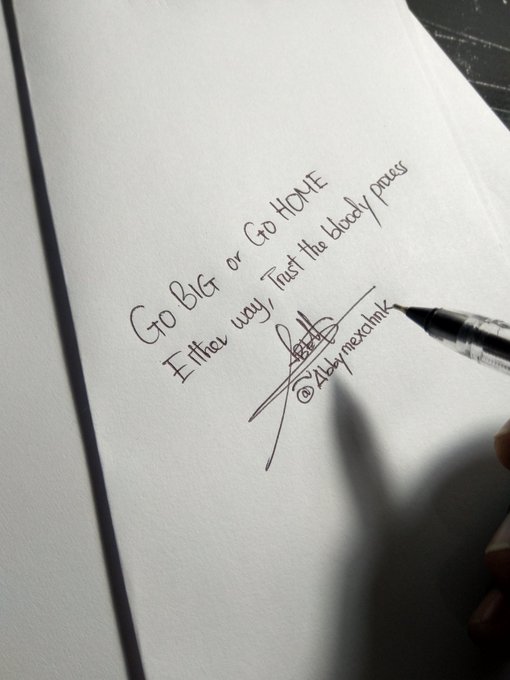 Go BIG or Go HOME
Either way, Trust the bloody process
@Abbymexahnk